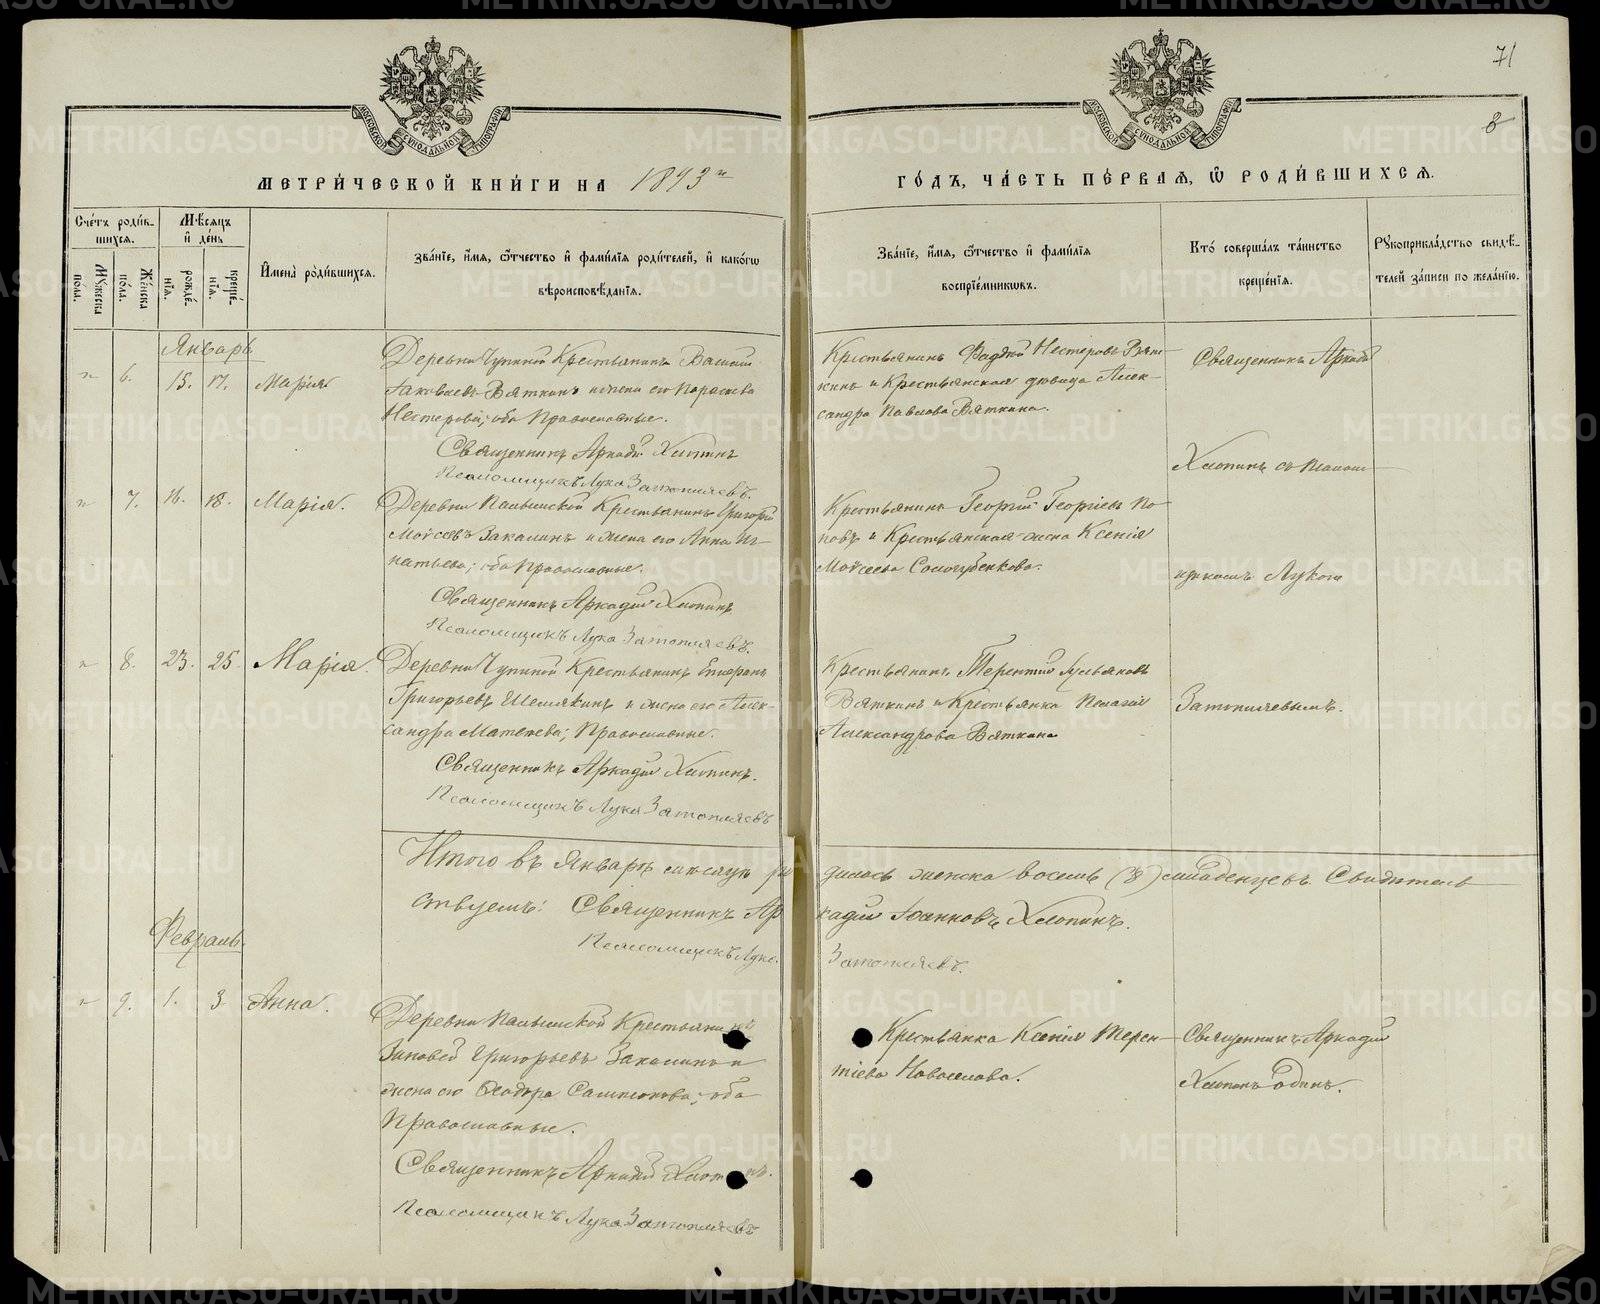 71
8
МОСКОВСКОЙ СѴНОДАЛЬНОЙ ТИПОГРАФІИ
МОСКОВСКОЙ СѴНОДАЛЬНОЙ ТИПОГРАФІИ
МЕТРИ́ЧЕСКОЙ КНИ́ГИ НА 1893 й
ГО́ДЪ, ЧА́СТЬ ПЕ́РВАЯ, Ѡ҆ РОДИ́ВШИХСЯ.
Сче́тъ роди́в-
шихся.
Мꙋжеска по́ла.
Же́нска по́ла.
Мѣ́сяцъ и҆ де́нь
рожде́нїѧ.
креще́нїѧ.
И҆мена̀ роди́вшихсѧ.
Зва́нїе, и҆́мѧ, ѻ҆́тчество и҆ фами́лїѧ роди́телей, и҆ како́гѡ
вѣроисповѣ́данїѧ.
Зва́нїе, и҆́мѧ, ѻ҆́тчество и҆ фами́лїѧ
воспрїе́мникѡвъ.
Кто̀ соверша́лъ та́инство
креще́нїѧ.
Рꙋкоприкла́дство свидѣ́-
телей за́писи по жела́нїю.
Январь
" 6. 15. 17. Марія
Деревни Чупиной Крестьянинъ Василій
Іаковлевъ Вяткинъ и жена его Параскева
Нестерова; оба Православные.
Священникъ Аркадій Хлопинъ
Псаломщикъ Лука Затопляевъ.
Крестьянинъ Фаддей Нестеровъ Вят-
кинъ и Крестьянская дѣвица Алек-
сандра Павлова Вяткина.
Священникъ Аркадій
Хлопинъ съ Псалом-
щикомъ Лукою
Затопляевымъ.
" 7. 16. 18. Марія.
Деревни Крестьянинъ Григорій
Моѵсеевъ Закалинъ и жена его Анна Иг-
натьева; оба Православные.
Священникъ Аркадій Хлопинъ
Псаломщикъ Лука Затопляевъ.
Крестьянинъ Георгій Георгіевъ По-
повъ и Крестьянская жена Ксенія
Моѵсеева
" 8. 23. 25. Марія.
Деревни Чупиной Крестьянинъ
Григорьевъ Шемякинъ и жена его Алек-
сандра Матвѣева; Православные.
Священникъ Аркадій Хлопинъ.
Псаломщикъ Лука Затопляевъ
Крестьянинъ Терентій
Вяткинъ и Крестьянка Пелагія
Александрова Вяткина
Итого въ Январѣ мѣсяцѣ ро дилось женска восемь (8) младенцевъ. Свидѣтель-
ствуемъ: Священникъ Ар кадій Іоанновъ Хлопинъ.
Псаломщикъ Лука Затопляевъ.
Февраль.
" 9. 1. 3. Анна.
Деревни Крестьянинъ
Зиновей Григорьевъ Закалинъ и
жена его Ѳеодора оба
Православные.
Священникъ Аркадій Хлопинъ.
Псаломщикъ Лука Затопляевъ
Крестьянка Ксенія Терен-
тіева Новоселова.
Священникъ Аркадій
Хлопинъ одинъ.
METRIKI.GASO-URAL.RU